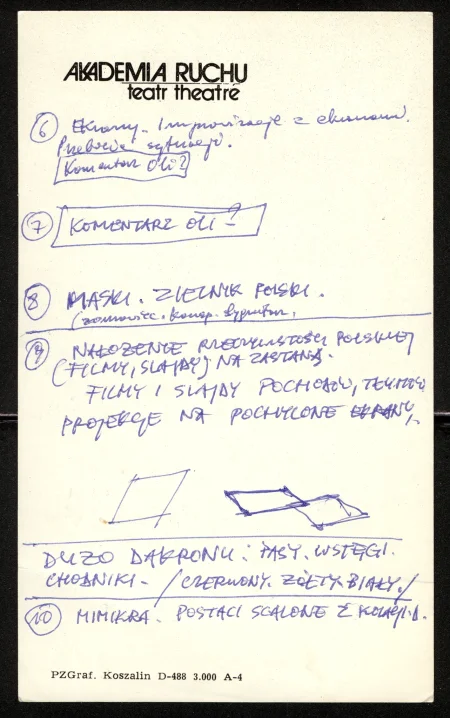 AKADEMIA RUCHU
teatr theatre
6 Ekrany. Improwizacje z ekranami.
sytuacji.
Komentarz Oli?
7 KOMENTARZ OLI - ?
8 MASKI. ZIELNIK POLSKI.
9 NAŁOŻENIE RZECZYWISTOŚCI POLSKIEJ
(FILMY, SLAJDY) NA ZASTANĄ.
FILMY I SLAJDY POCHODÓW,
PROJEKCJE NA POCHYLONE EKRANY
DUŻO DAKRONU: PASY. WSTĘGI.
CHODNIKI - /CZERWONY. ŻÓŁTY. BIAŁY./
10 MIMIKRA. POSTACI SCALONE Z
PZGraf. Koszalin D-488 3.000 A-4